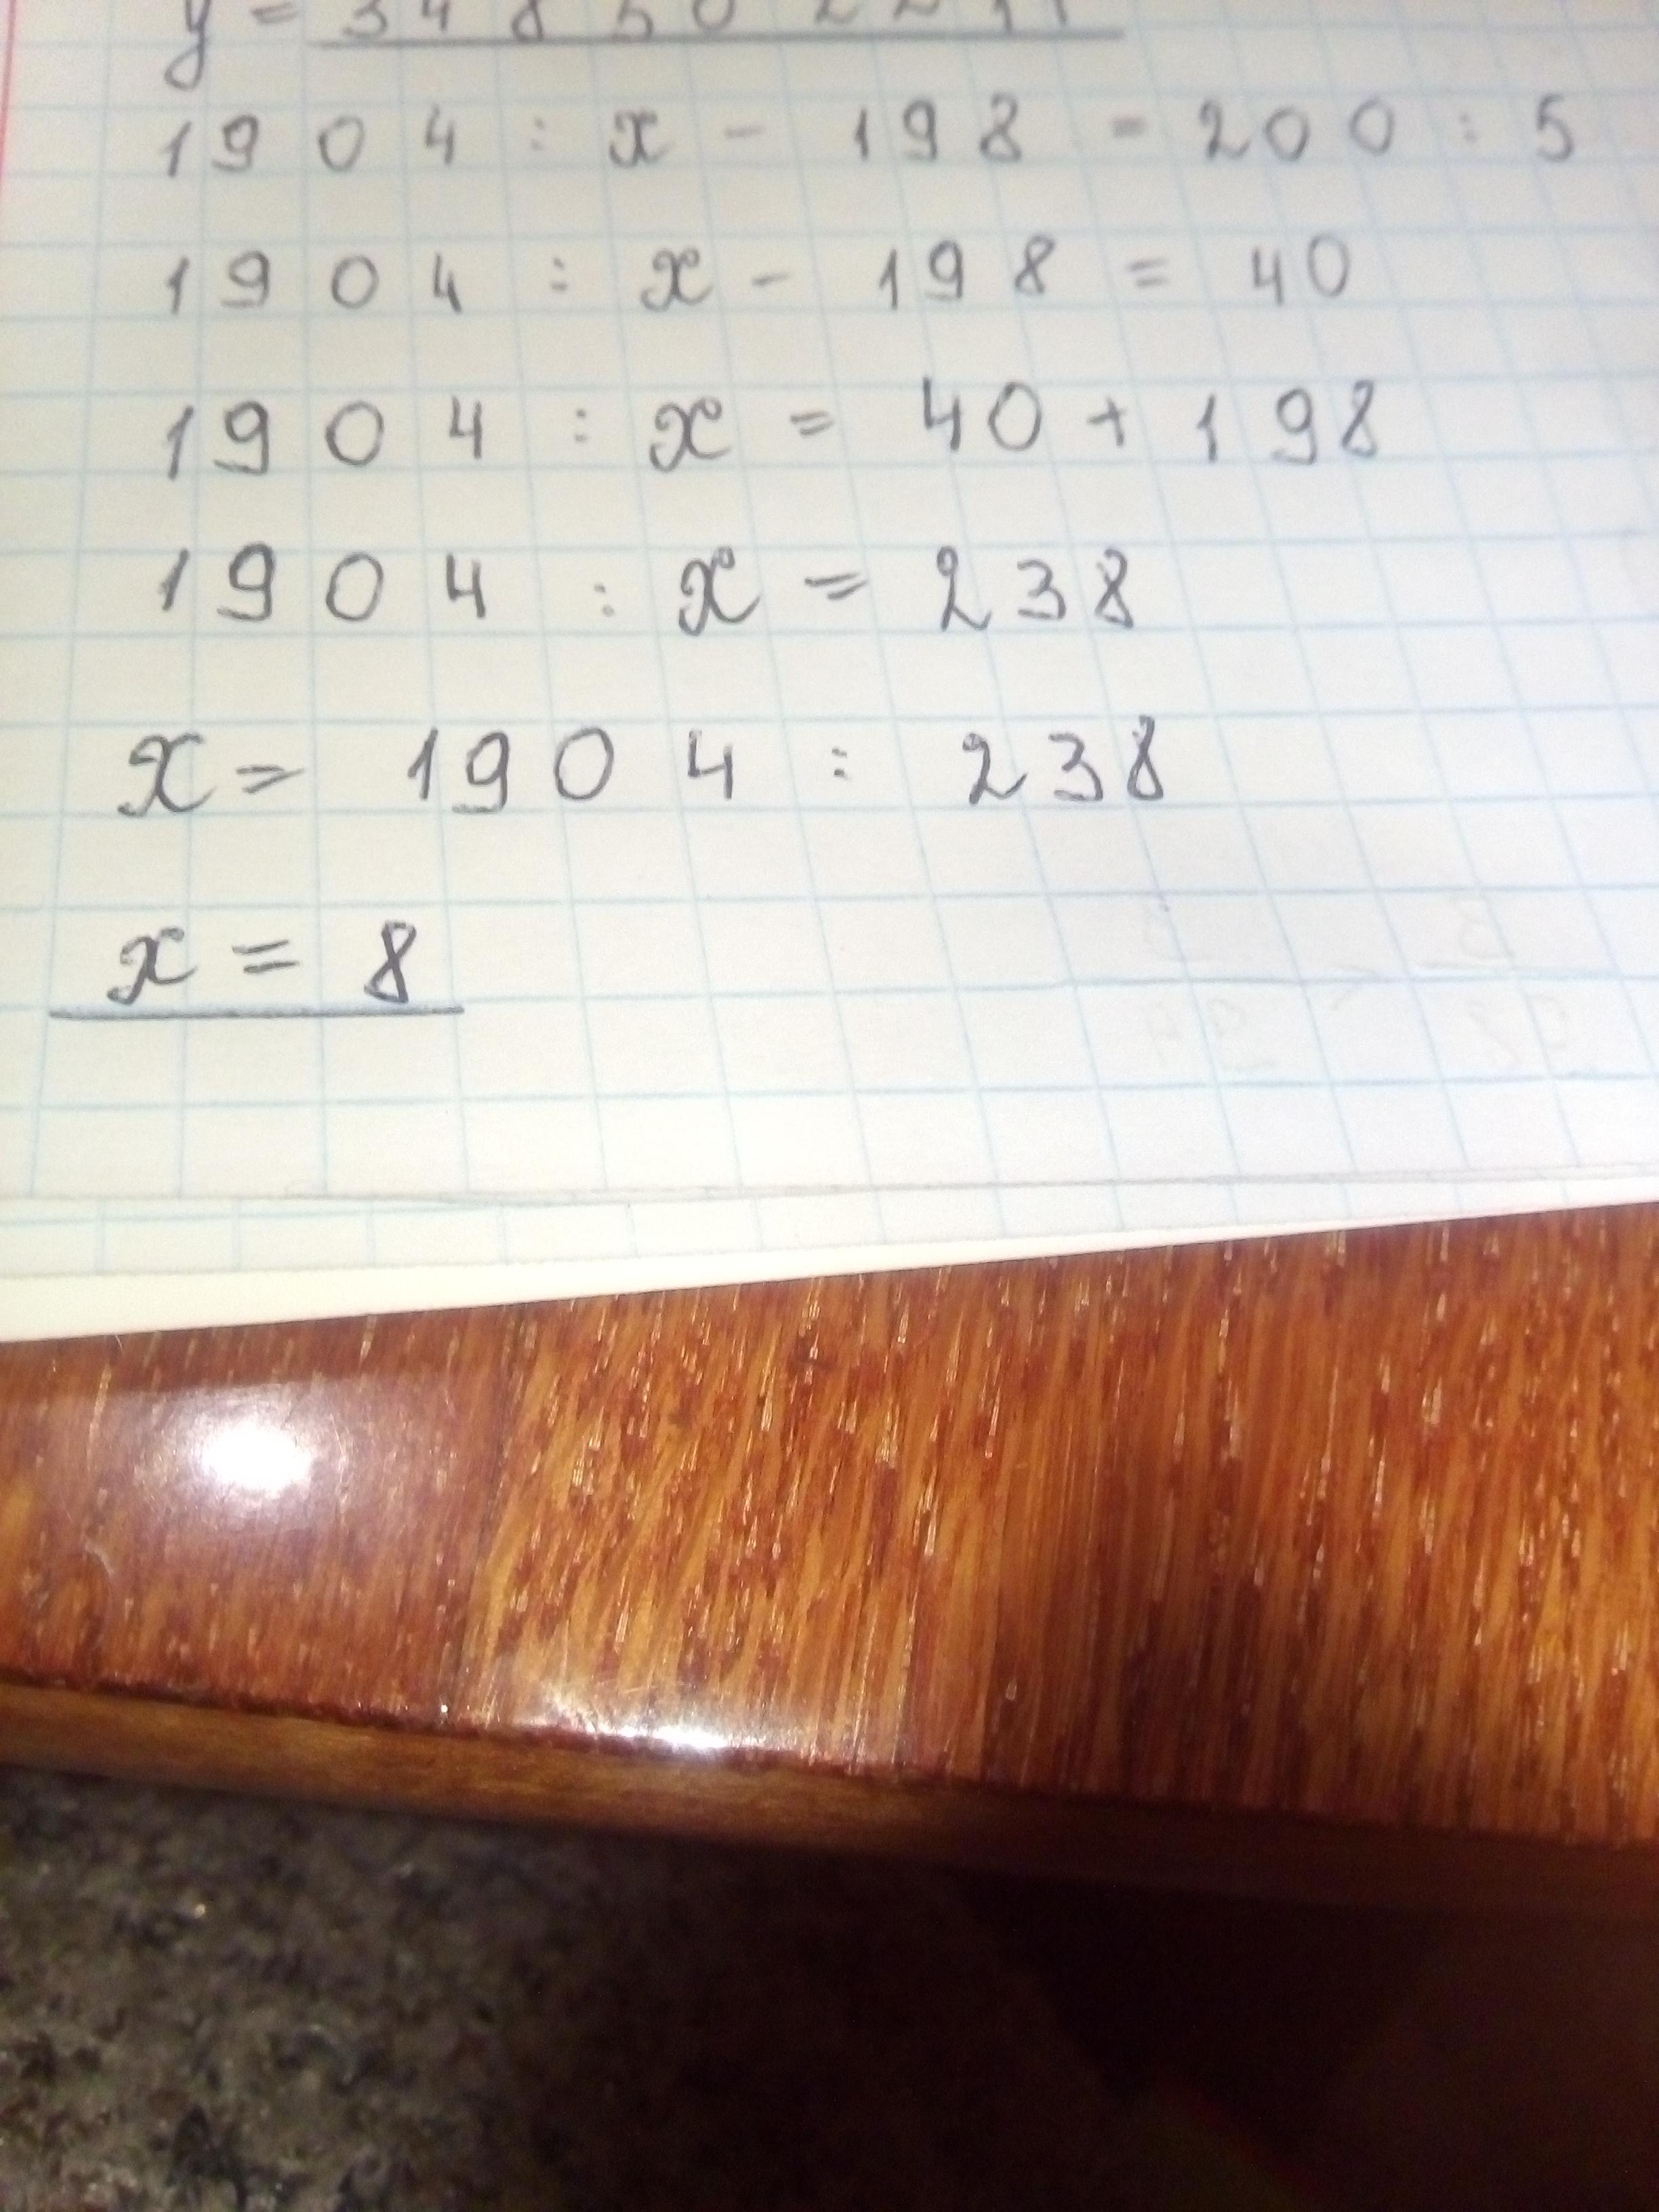 1904 : x - 198 = 200 : 5
1904 : x - 198 = 40
1904 : x = 40 + 198
1904 : x = 238
x = 1904 : 238
x = 8